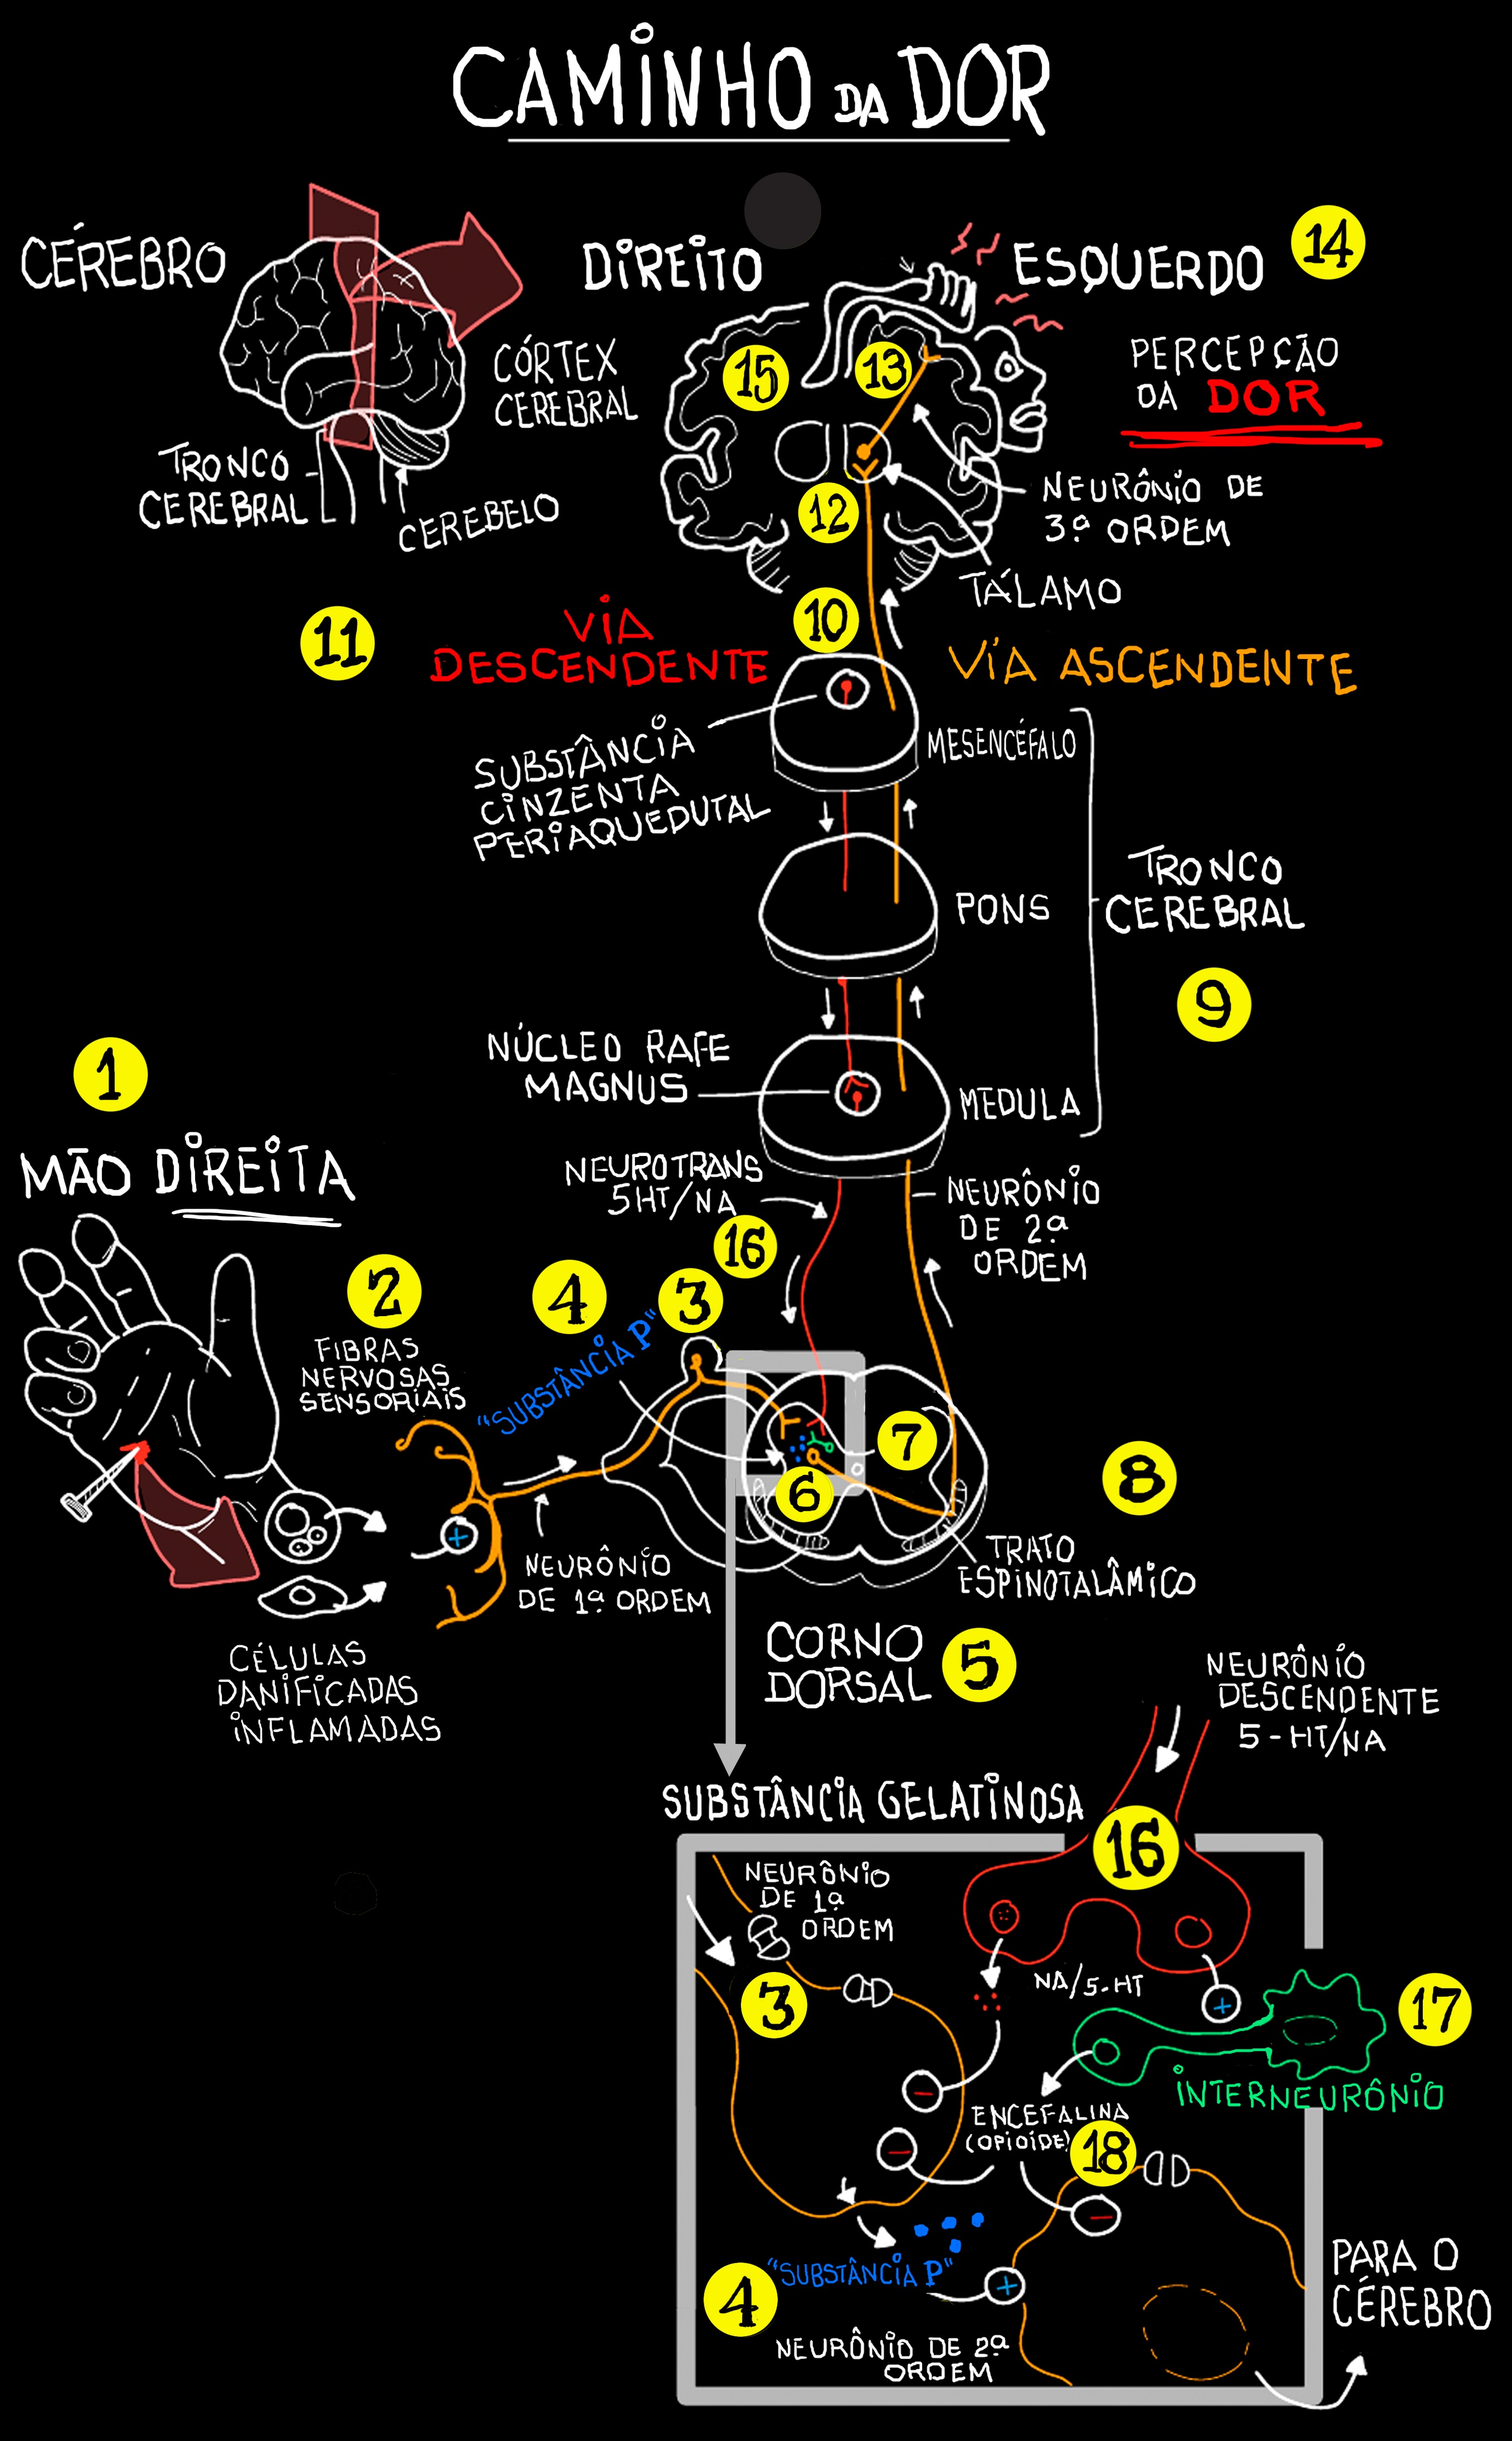 CAMINHO DA DOR
CÉREBRO
CÓRTEX
CEREBRAL
TRONCO
CEREBRAL
CEREBELO
DIREITO
ESQUERDO
14
PERCEPÇÃO
DA DOR
15
13
12
NEURÔNIO DE
3ª ORDEM
TÁLAMO
10
11
VIA
DESCENDENTE
VÍA ASCENDENTE
SUBSTÂNCIA
CINZENTA
PERIAQUEDUTAL
MESENCÉFALO
PONS
TRONCO
CEREBRAL
9
NÚCLEO RAFE
MAGNUS
MEDULA
1
MÃO DIREITA
NEUROTRANS
5HT/NA
16
NEURÔNIO
DE 2ª
ORDEM
2
FIBRAS
NERVOSAS
SENSORIAIS
4
"SUBSTÂNCIA P"
3
7
6
8
+
NEURÔNIO
DE 1ª ORDEM
TRATO
ESPINOTALÂMICO
CÉLULAS
DANIFICADAS
INFLAMADAS
CORNO
DORSAL
5
NEURÔNIO
DESCENDENTE
5-HT/NA
SUBSTÂNCIA GELATINOSA
16
NEURÔNIO
DE 1ª
ORDEM
3
NA/5-HT
+
17
INTERNEURÔNIO
-
ENCEFALINA
(OPIOIDE)
18
-
-
"SUBSTÂNCIA P"
4
+
NEURÔNIO DE 2ª
ORDEM
PARA O
CÉREBRO